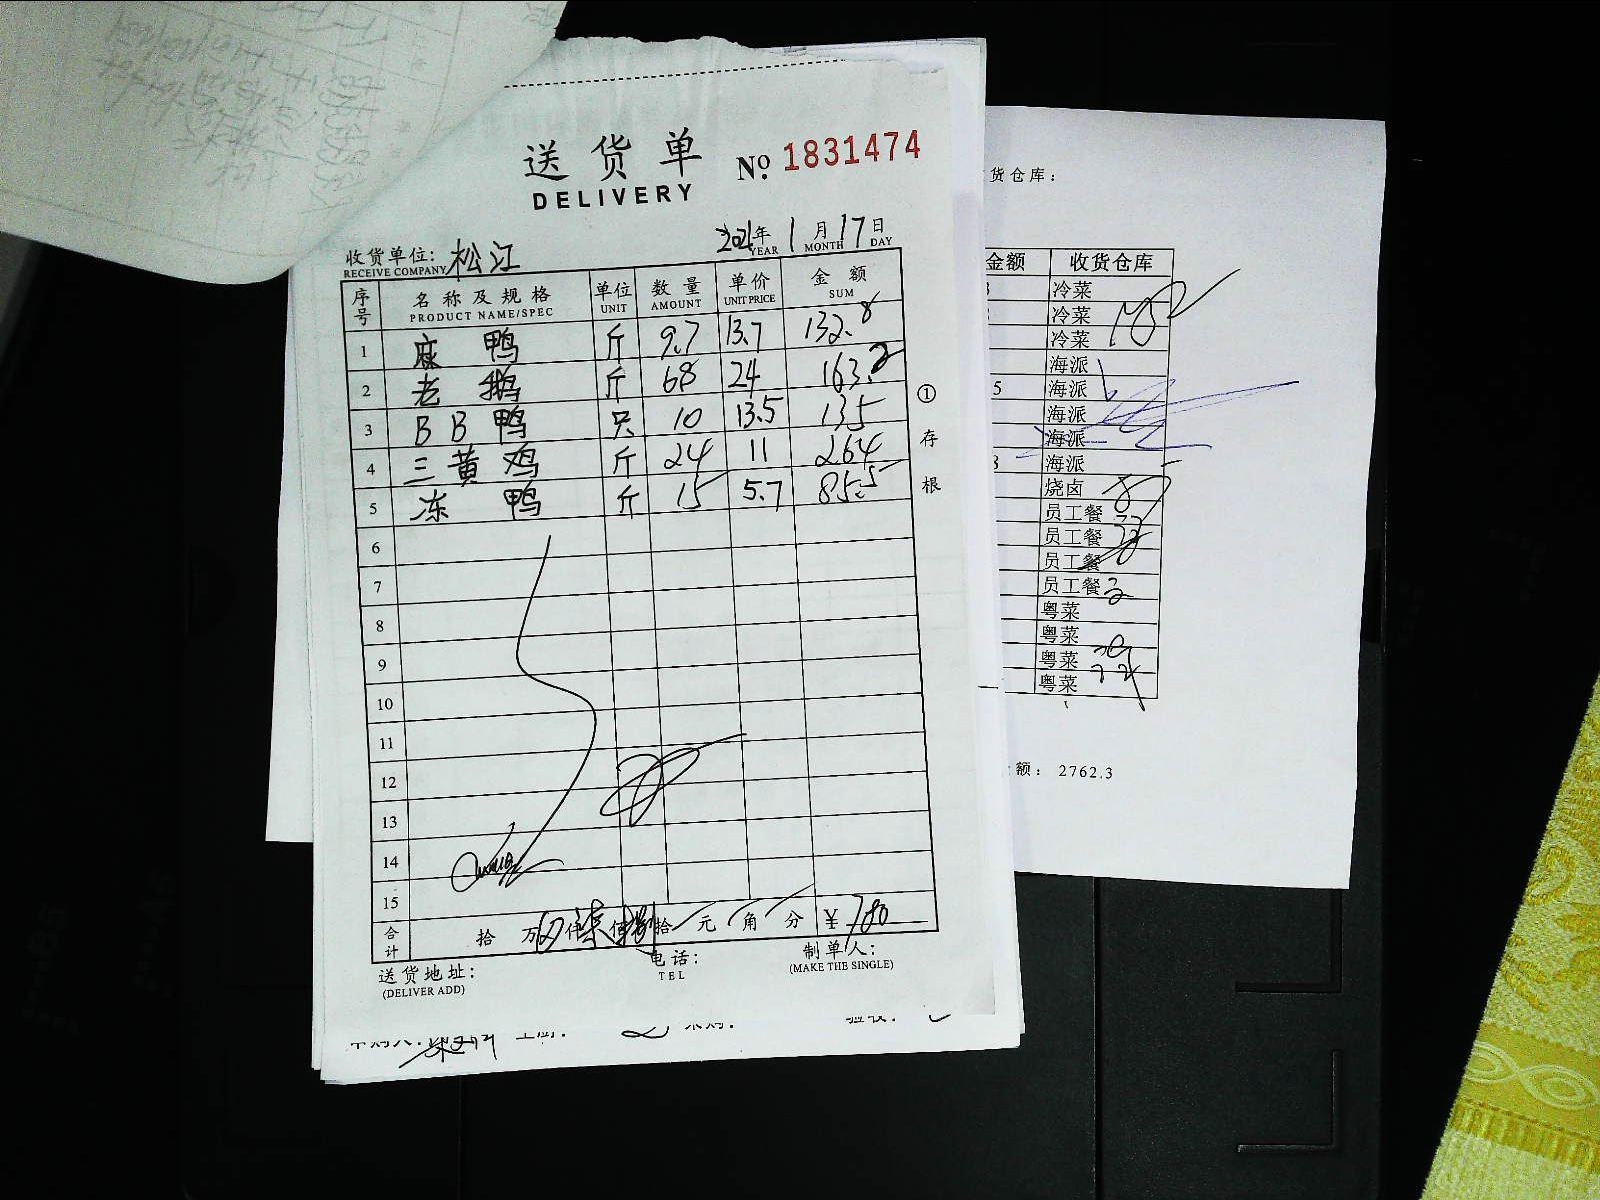 送货单
DELIVERY
№ 1831474
收货单位: 松江
RECEIVE COMPANY
2021年 1月 17日
YEAR MONTH DAY
序号 名称及规格 单位 数量 单价 金额
PRODUCT NAME/SPEC UNIT AMOUNT UNIT PRICE SUM
1 麻鸭 斤 9.7 13.7 132.8
2 老鹅 斤 68 24 163.2
3 BB鸭 只 10 13.5 135
4 三黄鸡 斤 24 11 264
5 冻鸭 斤 15 5.7 85.5
6
7
8
9
10
11
12
13
14
15
合计 拾 万 仟柒佰捌拾 元 角 分 ¥780
送货地址: 电话: 制单人:
(DELIVER ADD) TEL (MAKE THE SINGLE)
①存根
货仓库:
金额 收货仓库
冷菜
冷菜
冷菜
海派
5 海派
海派
海派
海派
烧卤
员工餐
员工餐
员工餐
员工餐
粤菜
粤菜
粤菜
粤菜
额: 2762.3